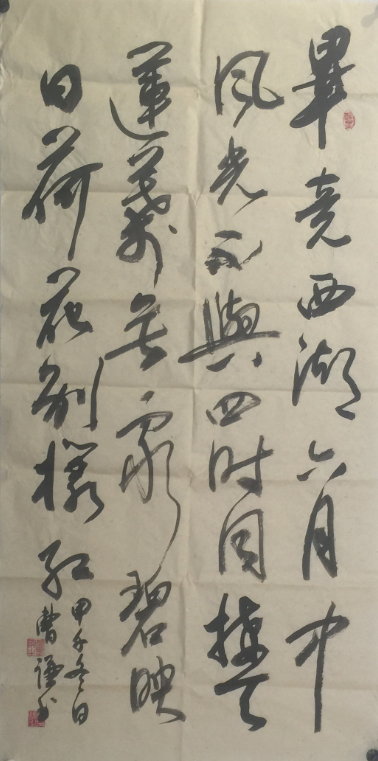 畢竟西湖六月中
風光不與四時同接天
蓮葉無窮碧映
日荷花别樣紅
甲午冬日
曹謙书